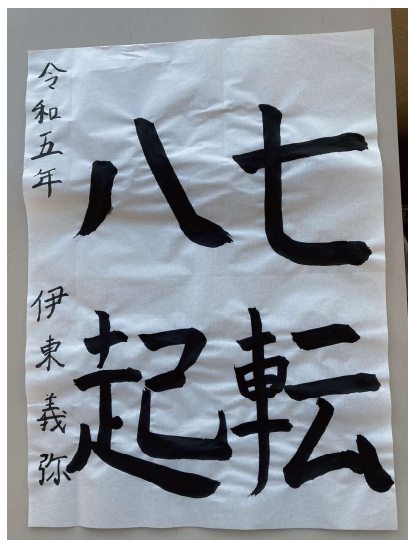 七転
八起
令和五年
伊東義弥